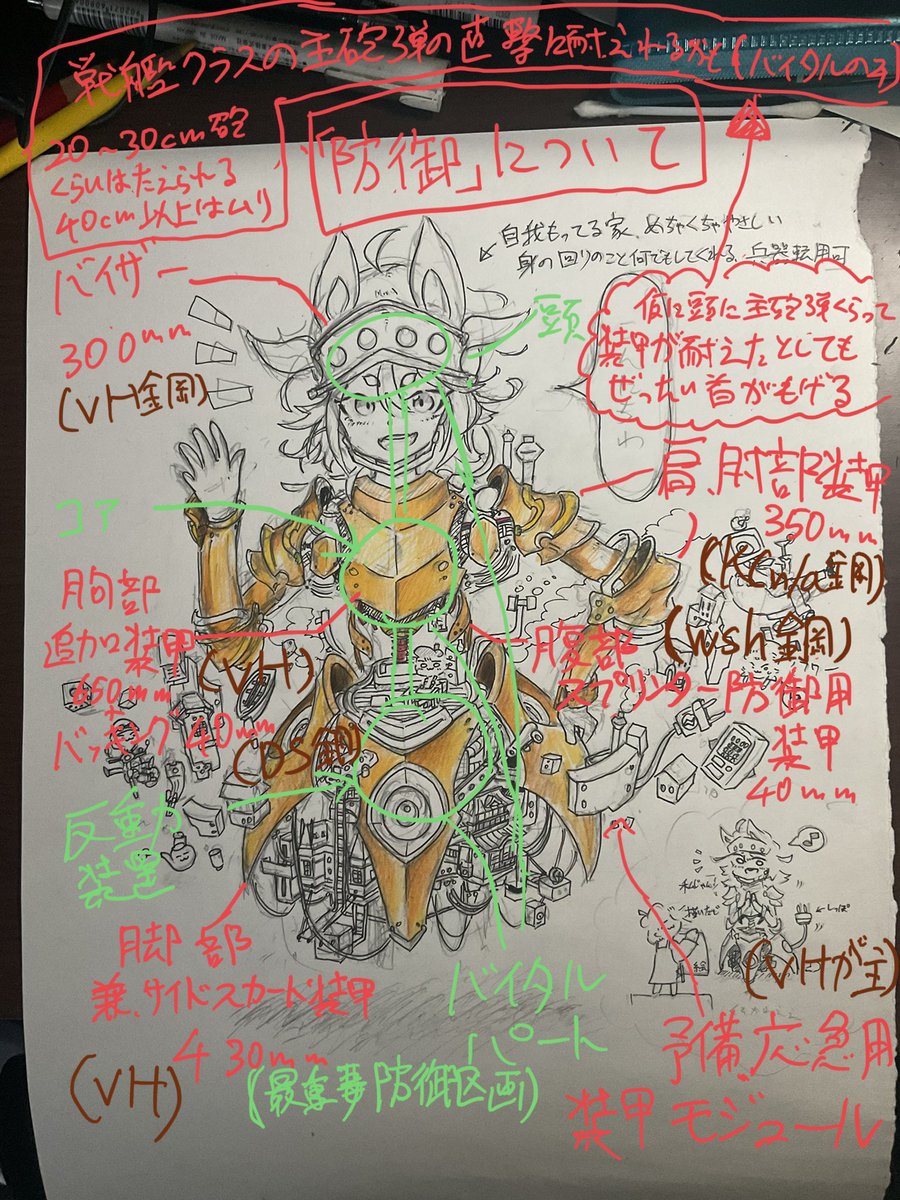 戦艦クラスの主砲弾の直撃に耐えれるかと(バイタルのみ)
20〜30cm砲
くらいはたえられる
40cm以上はムリ
「防御」について
自我もってる家、めちゃくちゃやさしい
身の回りのこと何でもしてくれる、兵器転用可
バイザー
300mm
(VH金鋼)
頭
仮に頭に主砲弾くらって
装甲が耐えたとしても
ぜったい首がもげる
肩、肘部装甲
350mm
(KCn/a鋼)
(wsh鋼)
コア
胸部
追加装甲
(VH)
650mm
+
バッキング40mm
(DS鋼)
腹部
スプリンター防御用
装甲
40mm
反動力
装置
脚部
兼、サイドスカート装甲
430mm
(VH)
バイタル
パート
(最重要防御区画)
描いたで
絵
しっぽ
(VHが主)
予備、応急用
装甲モジュール